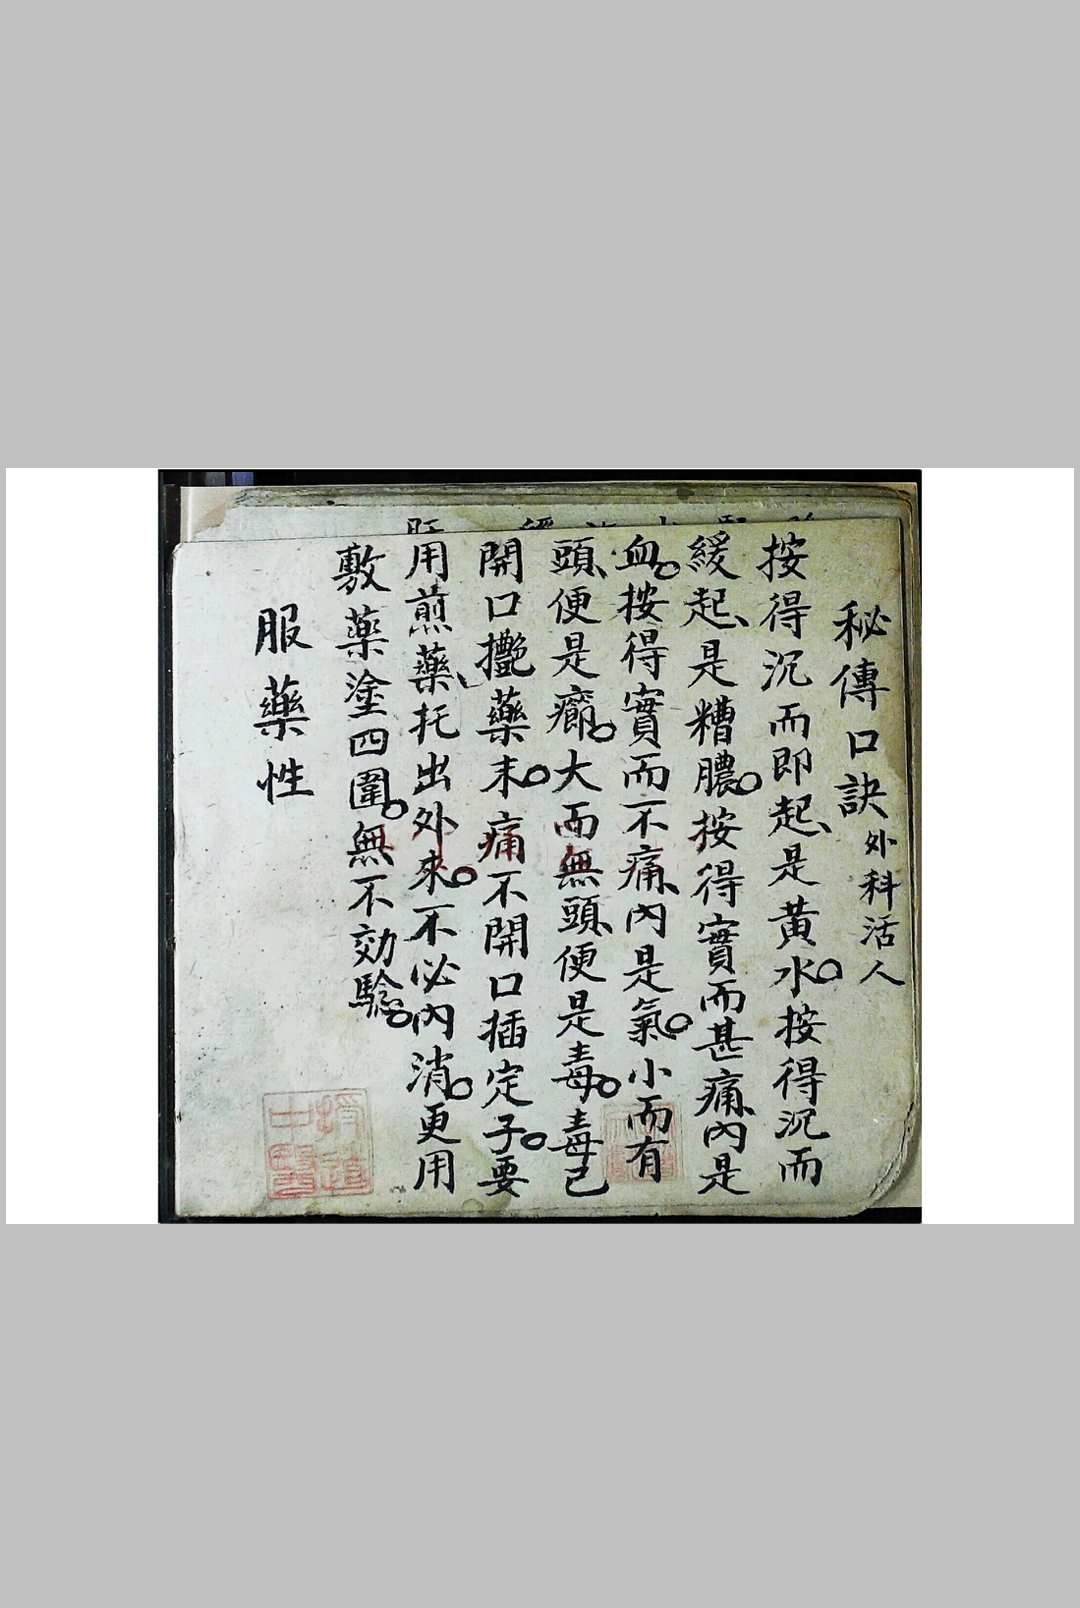 秘傳口訣 外科活人
按得沉而即起、是黃水。按得沉而
緩起、是糟膿。按得實而甚痛、內是
血。按得實而不痛、內是氣。小而有
頭、便是癤。大而無頭、便是毒。毒已
開口攙藥末。痛不開口插定子。要
用煎藥、托出外來。不必內消。更用
敷藥塗四圍。無不効驗。
服藥性